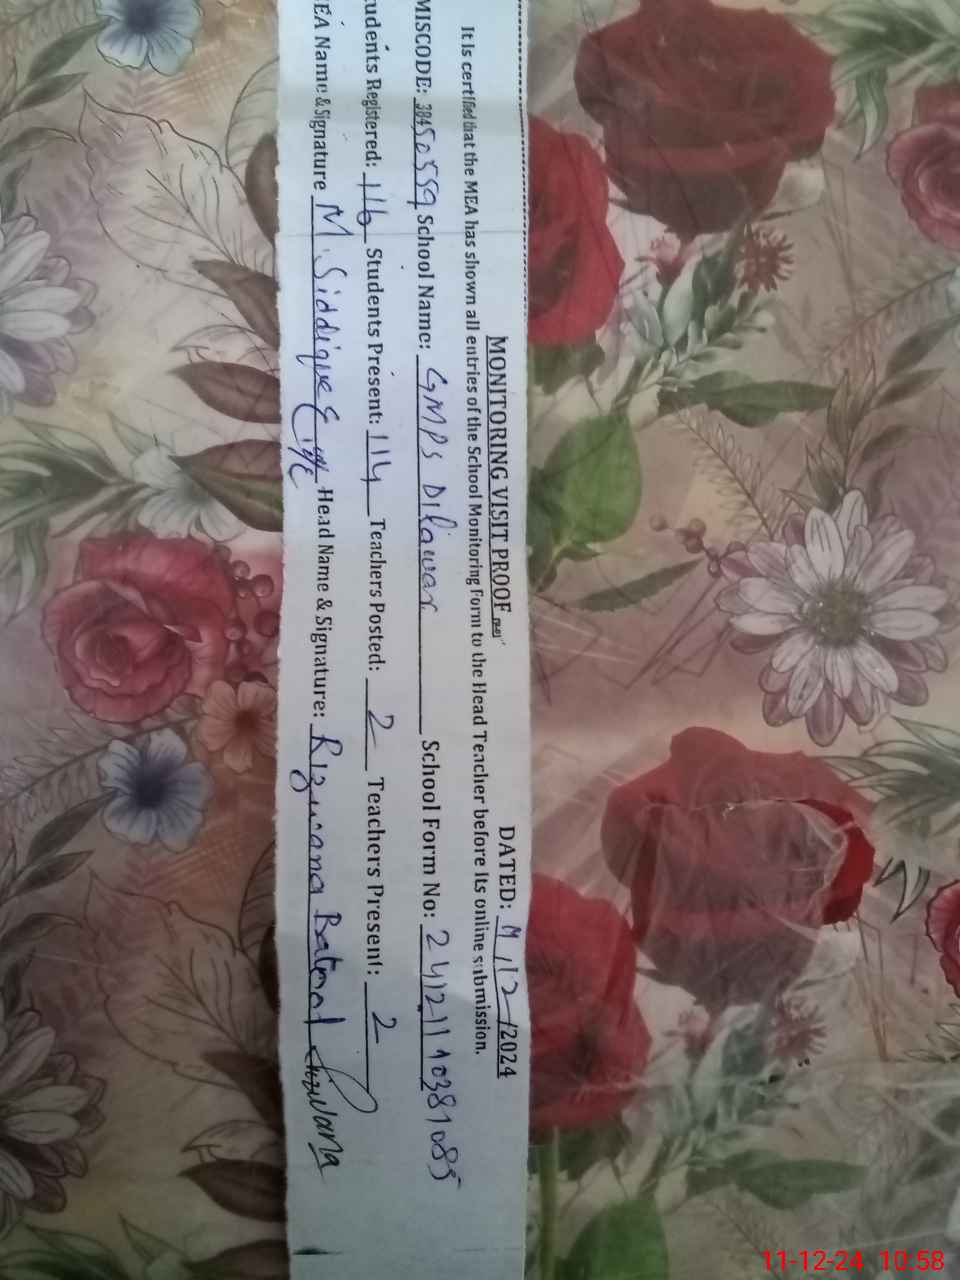 MONITORING VISIT PROOF DATED: 11/12/2024
It is certified that the MEA has shown all entries of the School Monitoring Form to the Head Teacher before its online submission.
MISCODE: 38450559 School Name: GMPS Dilawar School Form No: 241211 10381085
udents Registered: 116 Students Present: 114 Teachers Posted: 2 Teachers Present: 2
EA Name & Signature M. Siddique Head Name & Signature: Rizwana Batool Rizwana
11-12-24 10:58